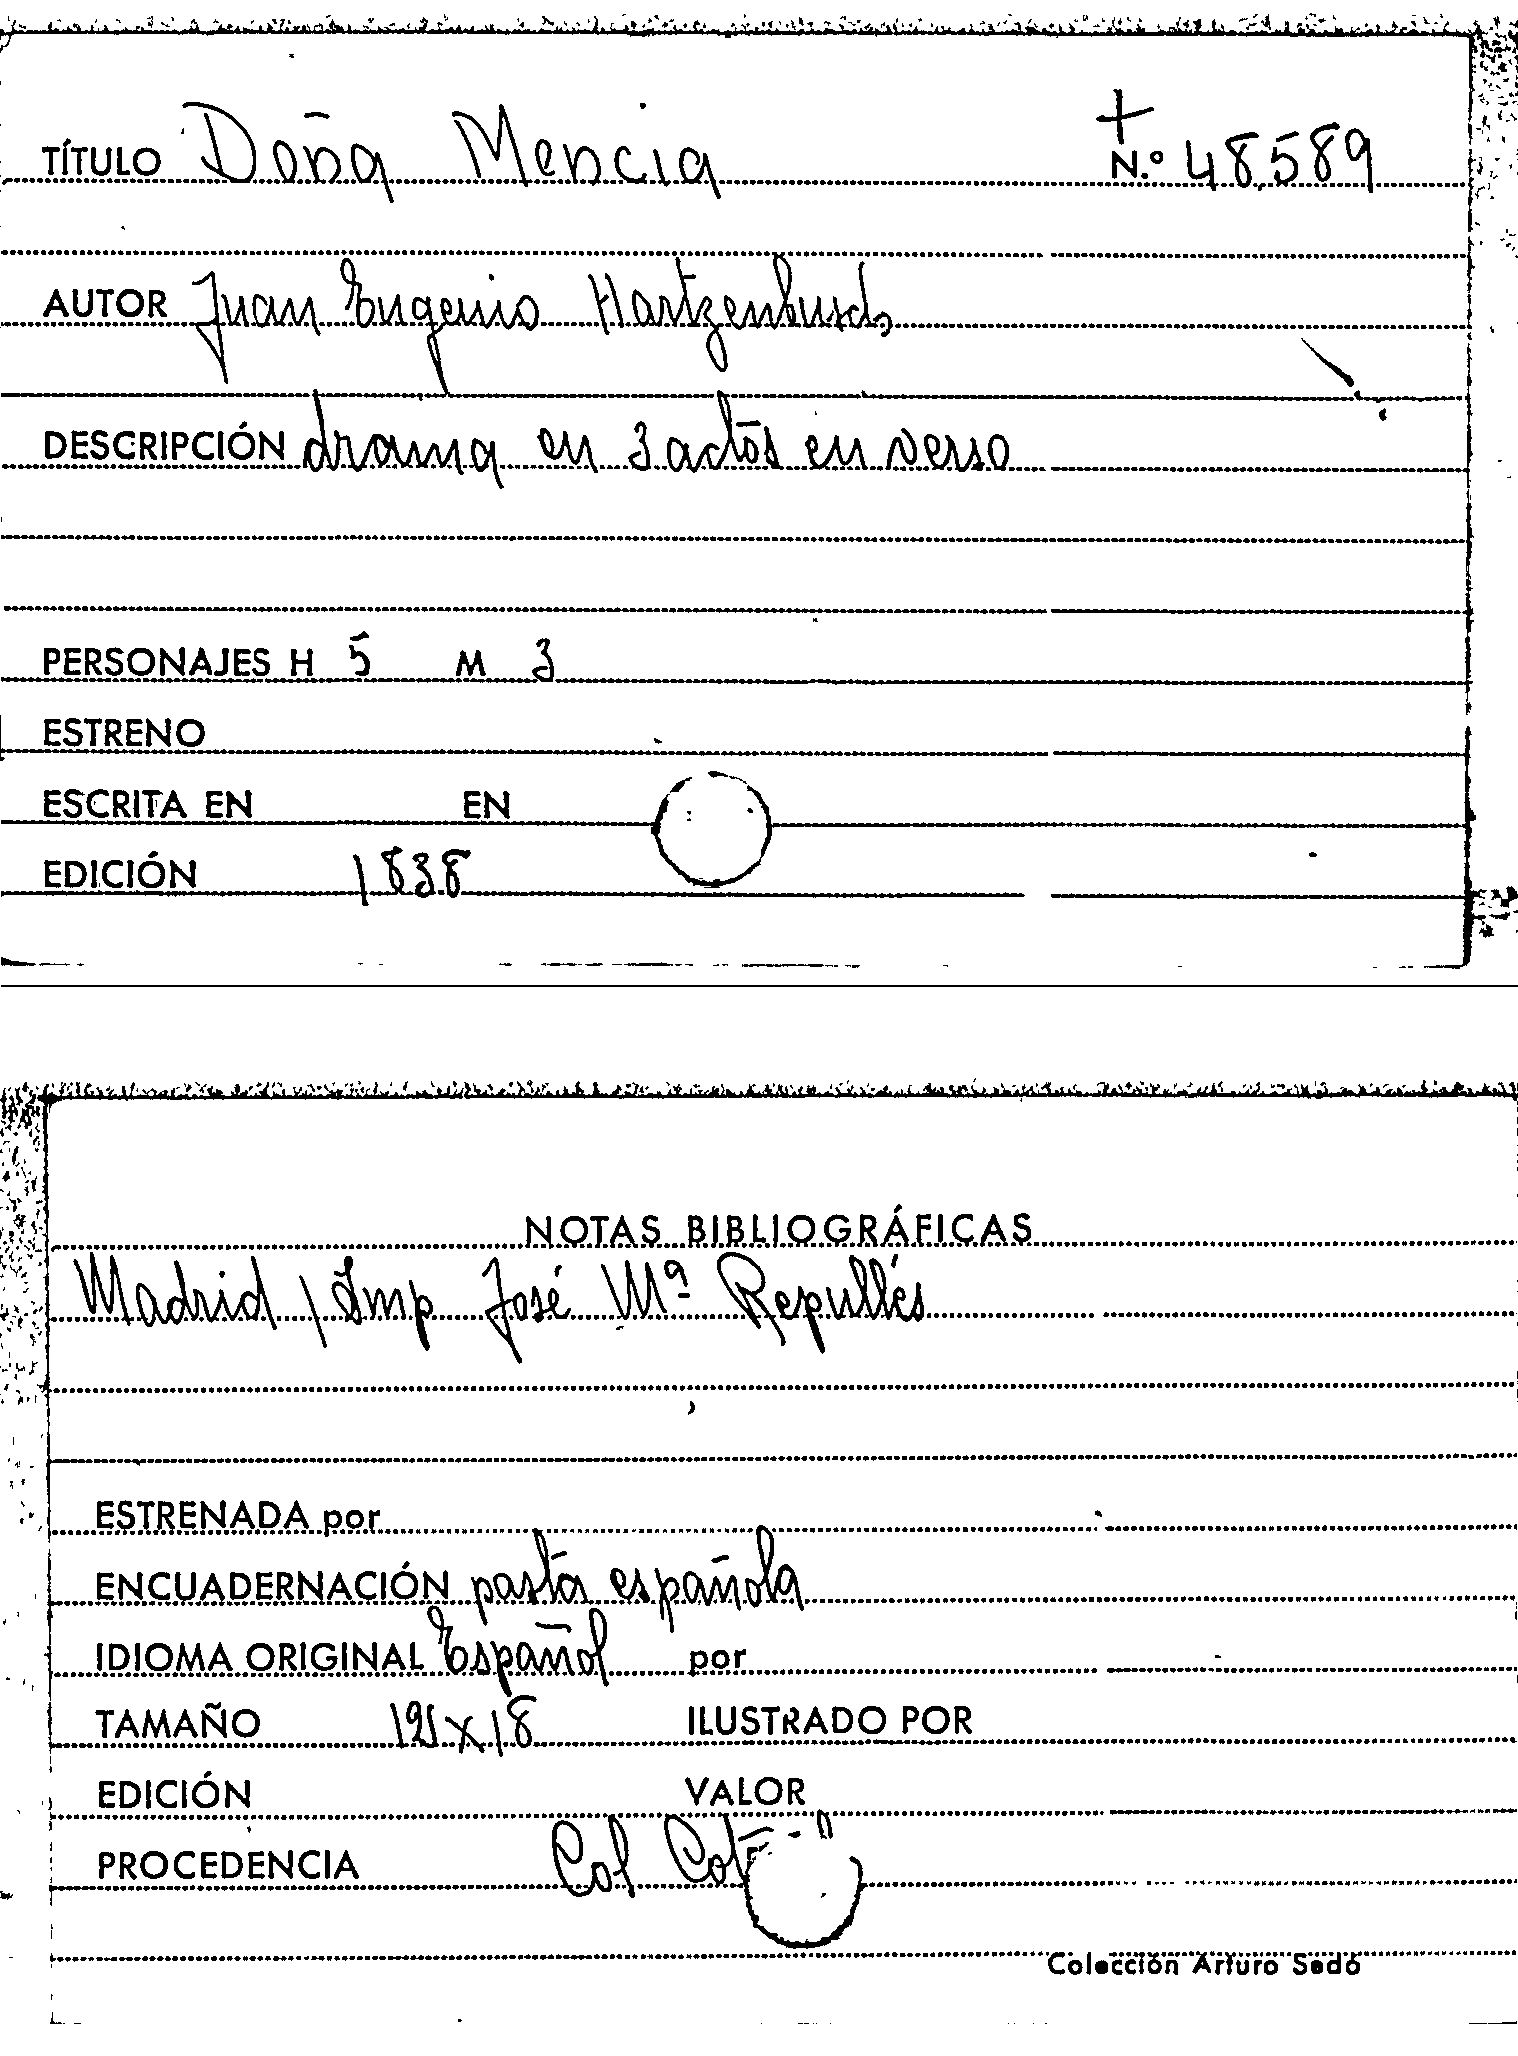 TÍTULO Doña Mencia + N.º 48.589
AUTOR Juan Eugenio Hartzenbusch
DESCRIPCIÓN drama en 3 actos en verso
PERSONAJES H 5 M 3
ESTRENO
ESCRITA EN EN
EDICIÓN 1838
NOTAS BIBLIOGRÁFICAS
Madrid / Imp José Mª Repullés
ESTRENADA por
ENCUADERNACIÓN pasta española
IDIOMA ORIGINAL Español por
TAMAÑO x18 ILUSTRADO POR
EDICIÓN VALOR
PROCEDENCIA Col
Colección Arturo Sedó